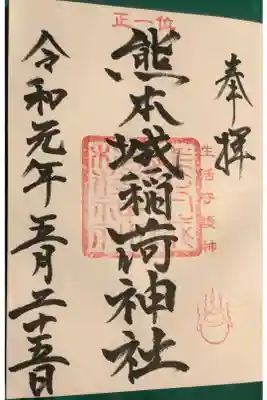 奉拝
生活守護神
正一位
熊本城稲荷神社
令和元年五月二十五日